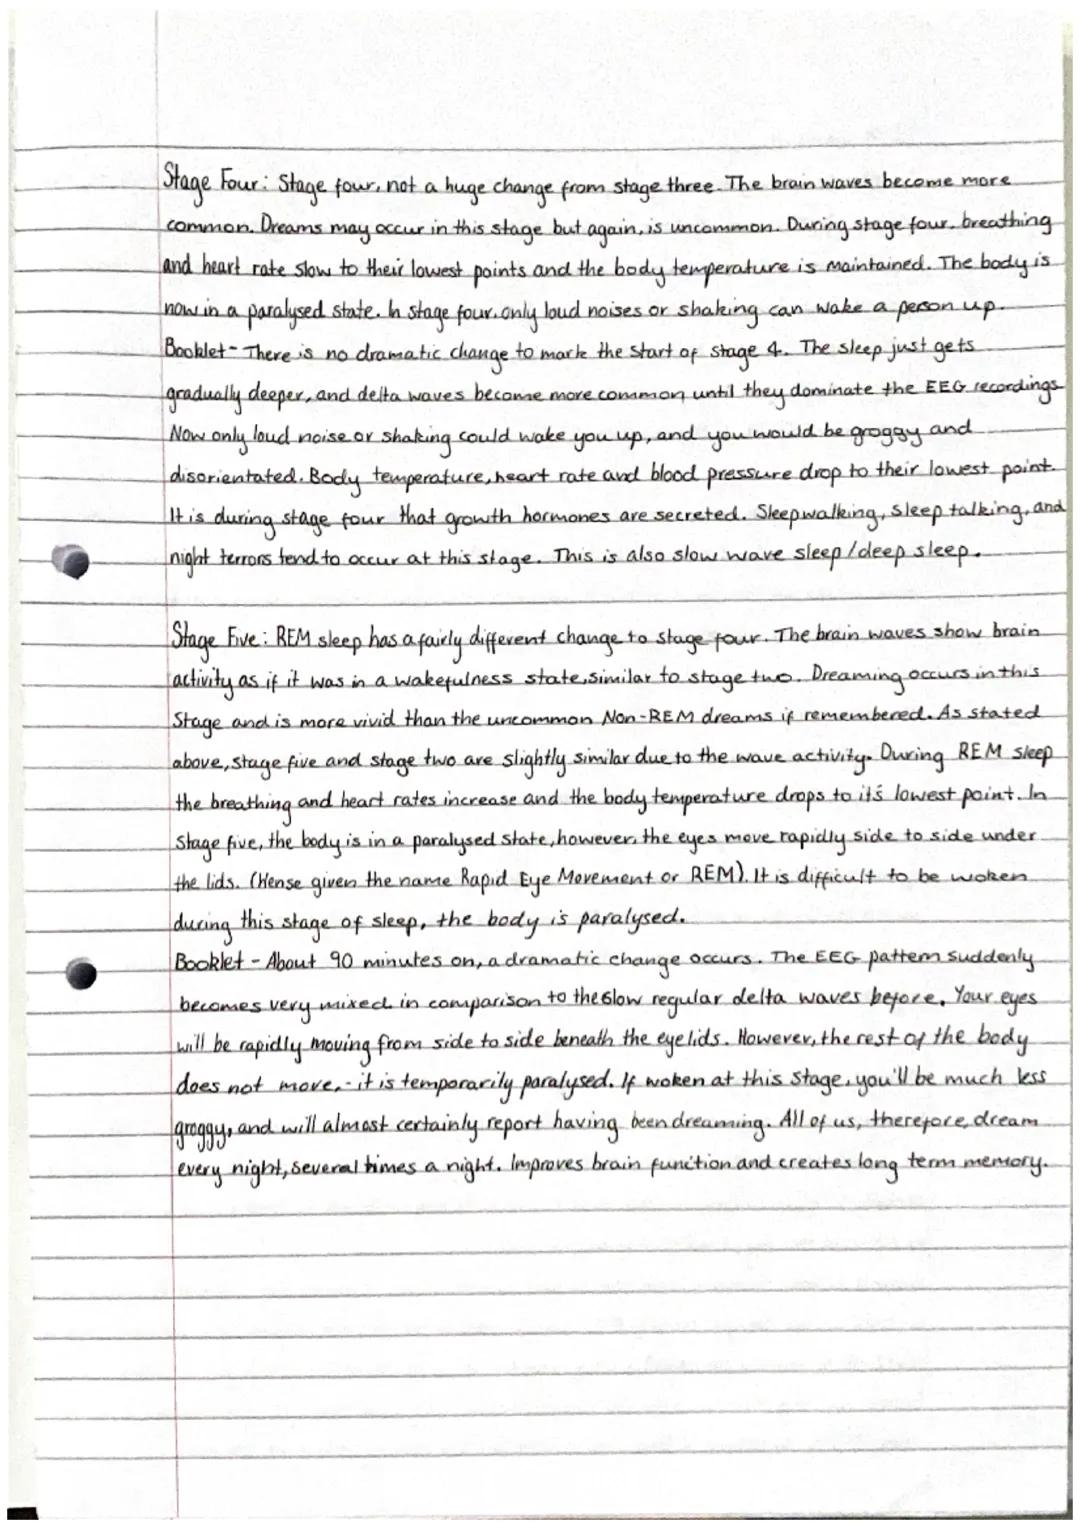 Stage Four: Stage four, not a huge change from stage three. The brain waves become more
common. Dreams may occur in this stage but again, is uncommon. During stage four, breathing
and heart rate slow to their lowest points and the body temperature is maintained. The body is
now in a paralysed state. In stage four, only loud noises or shaking can wake a person up.
Booklet - There is no dramatic change to mark the start of stage 4. The sleep just gets
gradually deeper, and delta waves become more common until they dominate the EEG recordings
Now only loud noise or shaking could wake you up, and you would be groggy and
disorientated. Body temperature, heart rate and blood pressure drop to their lowest point.
It is during stage four that growth hormones are secreted. Sleepwalking, sleep talking, and
night terrors tend to occur at this stage. This is also slow wave sleep/deep sleep.
Stage Five: REM sleep has a fairly different change to stage four. The brain waves show brain
activity as if it was in a wakefulness state, similar to stage two. Dreaming occurs in this
stage and is more vivid than the uncommon Non-REM dreams if remembered. As stated
above, stage five and stage two are slightly similar due to the wave activity. During REM sleep
the breathing and heart rates increase and the body temperature drops to it's lowest point. In
stage five, the body is in a paralysed state, however, the eyes move rapidly side to side under
the lids. (Hense given the name Rapid Eye Movement or REM). It is difficult to be woken
during this stage of sleep, the body is paralysed.
Booklet - About 90 minutes on, a dramatic change occurs. The EEG pattern suddenly
becomes very mixed in comparison to the slow regular delta waves before. Your eyes
will be rapidly moving from side to side beneath the eyelids. However, the rest of the body
does not move, - it is temporarily paralysed. If woken at this stage, you'll be much less
groggy, and will almost certainly report having been dreaming. All of us, therefore, dream
every night, several times a night. Improves brain function and creates long term memory.